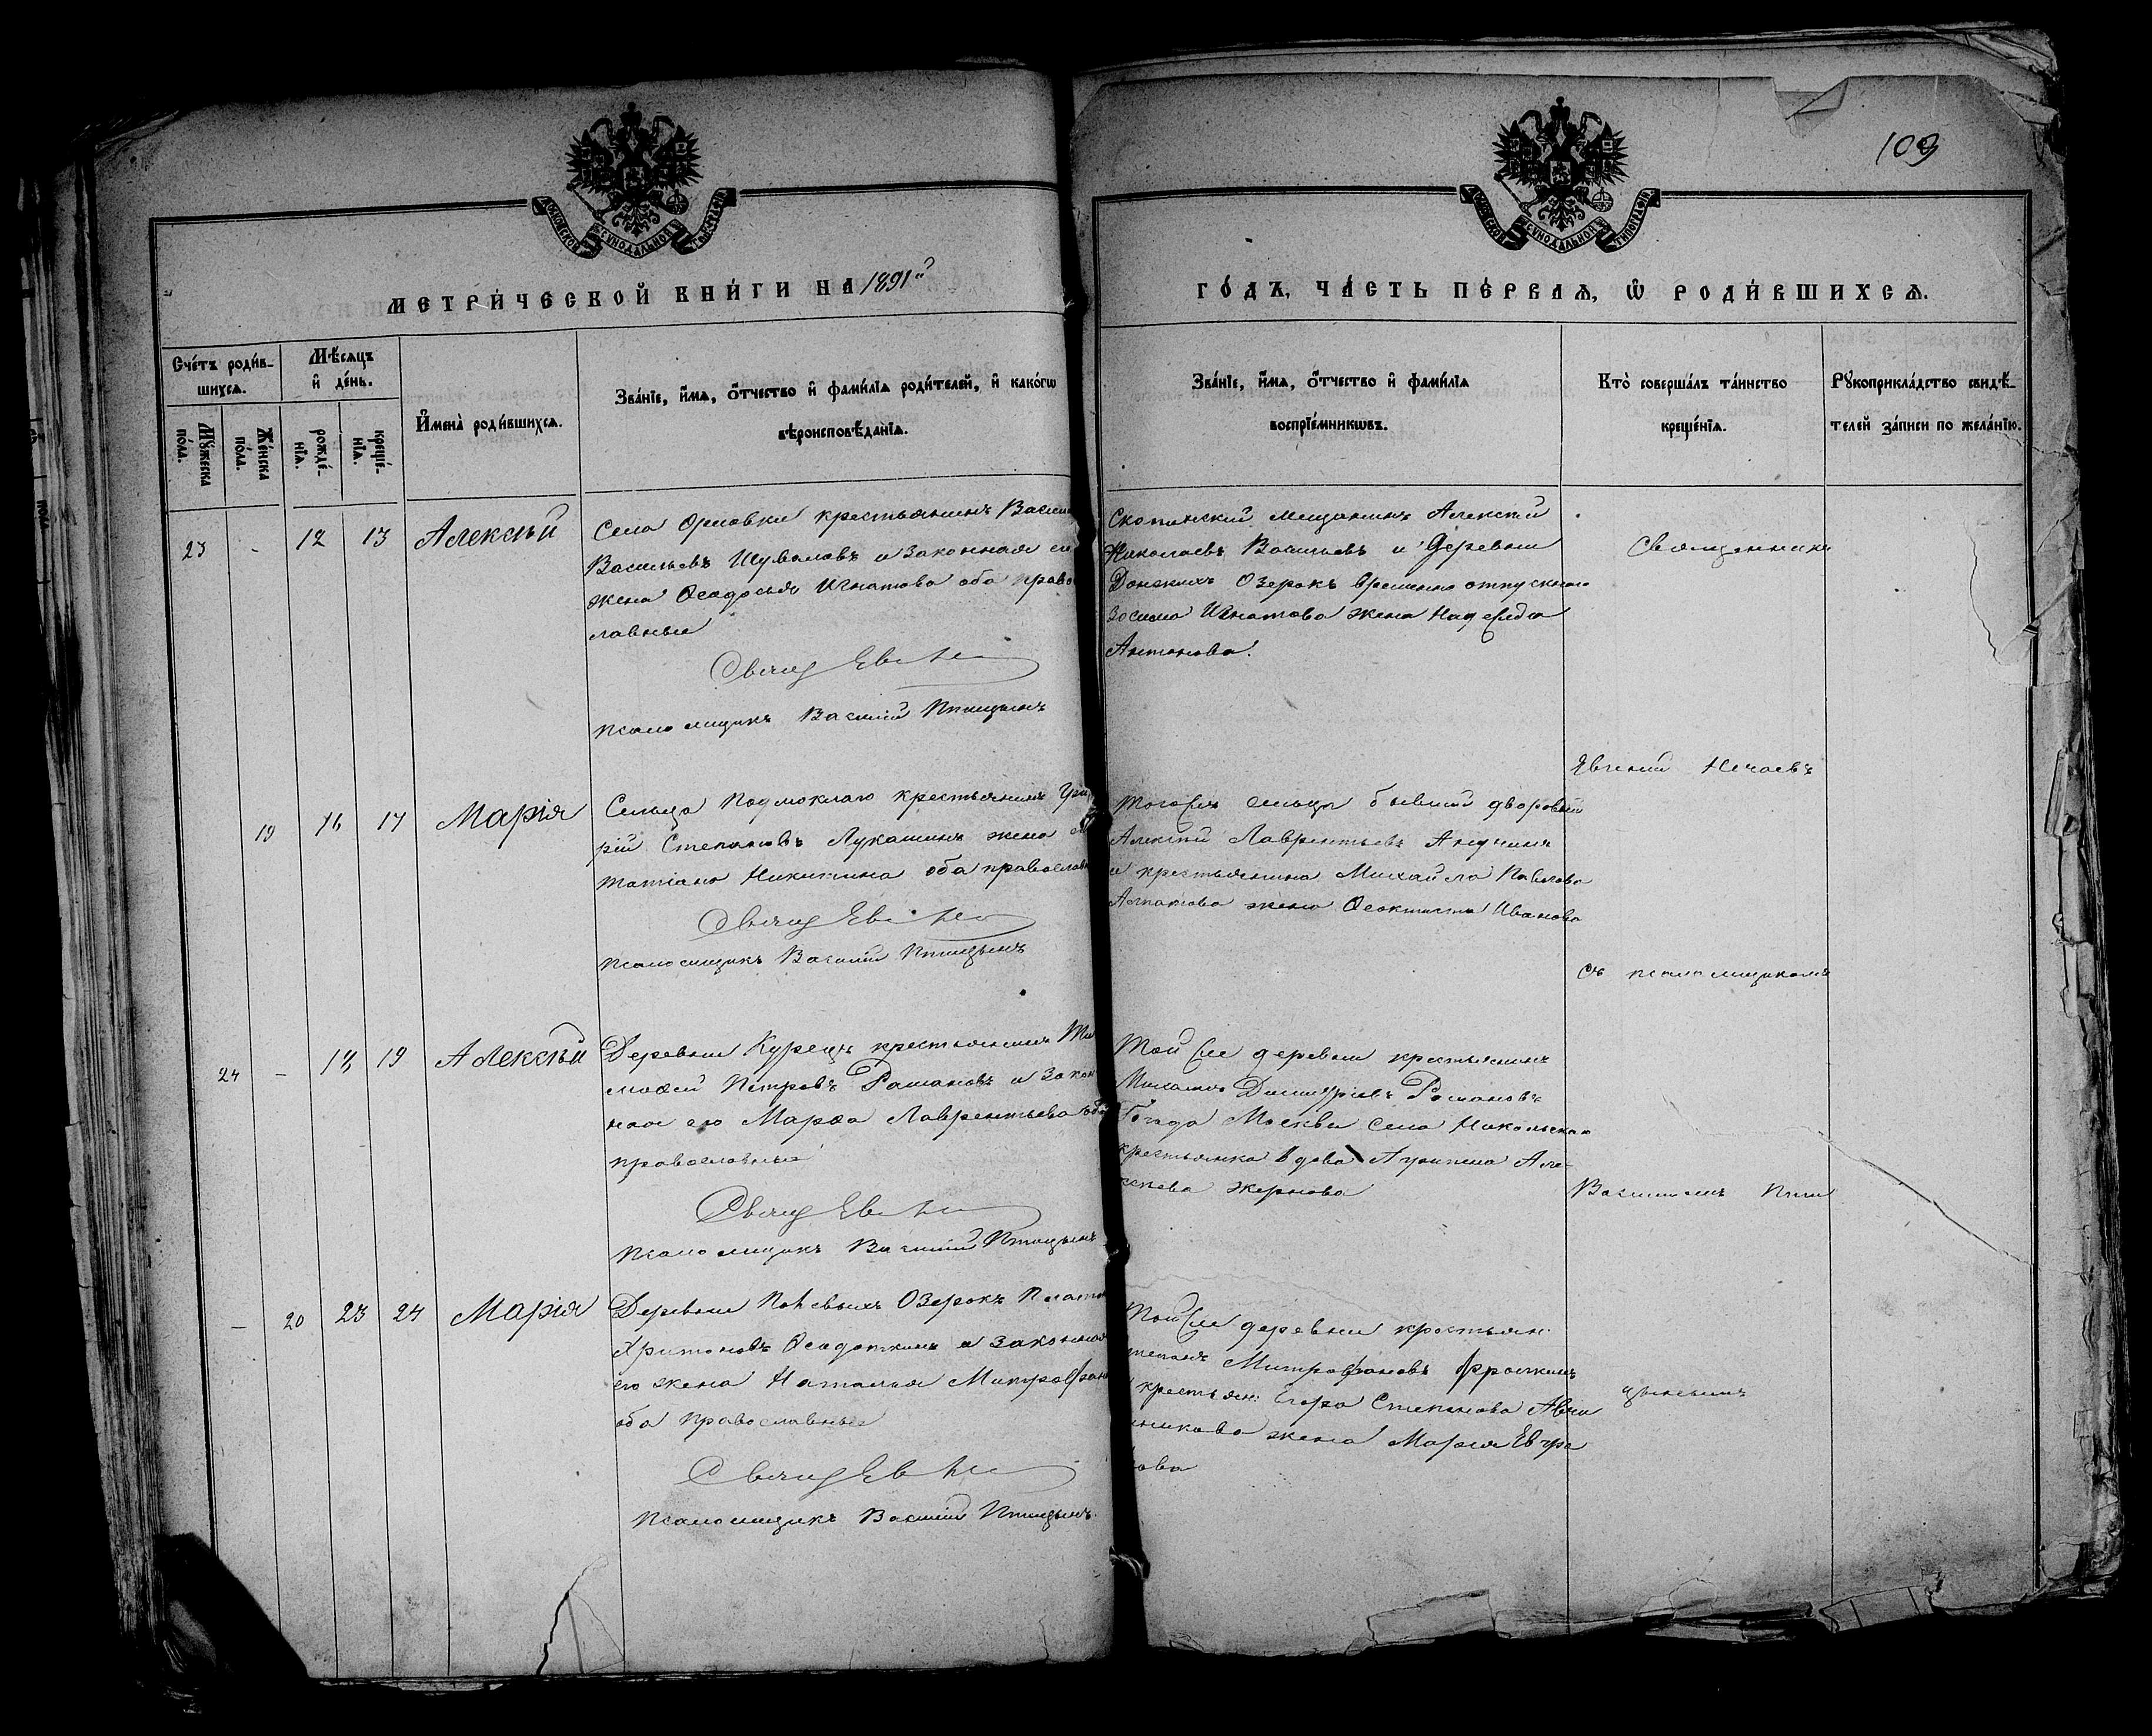 103
МОСКОВСКОЙ СѴНОДАЛЬНОЙ ТѴПОГРАФІИ
МОСКОВСКОЙ СѴНОДАЛЬНОЙ ТИПОГРАФІИ
МЕТРИ́ЧЕСКОЙ КНИ́ГИ НА 1891й
ГО́ДЪ, ЧА́СТЬ ПЕ́РВАѦ, Ѽ РОДИ́ВШИХСѦ.
Сче́тъ роди́в-
шихсѧ.
Мꙋ́жеска
по́ла.
Же́нска
по́ла.
Мѣ́сѧцъ
и҆ де́нь.
рожде́-
нїѧ.
креще́-
нїѧ.
И҆мена̀ роди́вшихсѧ.
Зва́нїе, и҆́мѧ, ѻ҆́тчество и҆ фами́лїѧ роди́телей, и҆ како́гѡ
вѣроисповѣ́данїѧ.
Зва́нїе, и҆́мѧ, ѻ҆́тчество и҆ фами́лїѧ
воспрїе́мникѡвъ.
Кто̀ соверша́лъ та́инство
креще́нїѧ.
Рꙋкоприкла́дство свидѣ́-
телей за́писи по жела́нїю.
23 - 12 13 Алексѣй
Села Орловки крестьянинъ Васили
Васильевъ Шуваловъ и законная его
жена Ѳеодосья Игнатова оба право
славные
Свящ Ев Не
Псаломщикъ Василій Птицынъ
Скопинскій мещанинъ Алексѣй
Николаевъ Васильевъ и Деревни
Донскихъ Озерокъ временно отпускного
Зосима Игнатова жена Надежда
Антонова.
Священникъ
Евгеній Нечаевъ
19 16 17 Марія
Сельца Подмоклаго крестьянинъ Григо
рій Степановъ Лукашинъ жена его
Татіана Никитина оба православн
Свящ Ев Не
Псаломщикъ Василій Птицынъ
Тогоже сельца бывшій дворовый
Алексѣй Лаврентьевъ
и крестьянина Михаила Павлова
жена Ѳеоктиста Иванова
Съ псаломщикомъ
24 - 18 19 Алексѣй
Деревни Курецъ крестьянинъ Ти
моѳей Петровъ Романовъ и закон
ная его Марѳа Лаврентьева оба
православные
Свящ Ев Не
Псаломщикъ Василій Птицынъ
Той же деревни крестьянинъ
Михаилъ Димитріевъ Романовъ
Города Москвы села Никольскаго
крестьянка вдова Агрипена Але-
ксеева Жернова
Василіемъ Пти
- 20 23 24 Марія
Деревни Полевыхъ Озерокъ Платонъ
Харитоновъ Ѳедоткинъ и законная
его жена Наталья Митрофан
оба православные
Свящ Ев Не
Псаломщикъ Василій Птицынъ.
Той же деревни крестьян.
Митрофановъ Фролкинъ
крестьян: Егора Степанова
жена Марія Евгра
ова
цынымъ